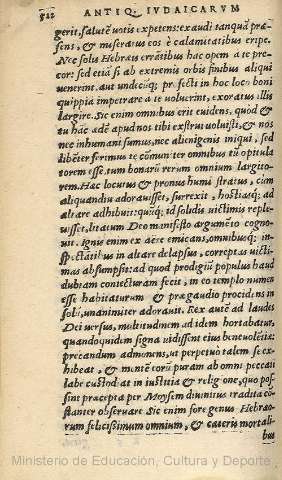 812 ANTIQ. IVDAICARVM
gerit, salutē votis expetens: exaudi tanquā præ-
sens, & miseratus eos è calamitatibus eripe.
Nec solis Hebræis errātibus hac opem a te pre-
cor: sed etiā si ab extremis orbis finibus aliqui
venerint, aut undecūq; profecti in hoc loco boni
quippiā impetrare a te voluerint, exoratus illis
largire. Sic enim omnibus erit euidens, quòd &
tu hāc ædē apud nos tibi extrui voluisti, & nos
nec inhumani sumus, nec alienigenis iniqui, sed
libēter ferimus te cōmuniter omnibus tū opitula
torem esse, tum bonarū rerum omnium largito-
rem. Hæc locutus & pronus humi stratus, cum
aliquandiu adorauisset, surrexit, hostiasq; ad
altare adhibuit: quūq; id solidis victimis reple-
uisset, litatum Deo manifesto argumēto cogno-
uit. Ignis enim ex aëre emicans, omnibusq; in-
spectātibus in altare delapsus, correptas victi-
mas absumpsit: ad quod prodigiū populus haud
dubiam coniecturam fecit, in eo templo numen
esse habitaturum & prægaudio procidens in
solū, unanimiter adorauit. Rex autē ad laudes
Dei versus, multitudinem ad idem hortabatur,
quandoquidem signa vidissent eius beneuolētiæ:
precandum admonens, ut perpetuò talem se ex-
hibeat, & mentē corū puram ab omni peccati
labe custodiat in iustitia & religione, quo pos-
sint præcepta per Moysem diuinitus tradita cō-
stanter obseruare. Sic enim fore genus Hebræo-
rum felicissimum omnium, & cæteris mortali-
bus
Ministerio de Educación, Cultura y Deporte